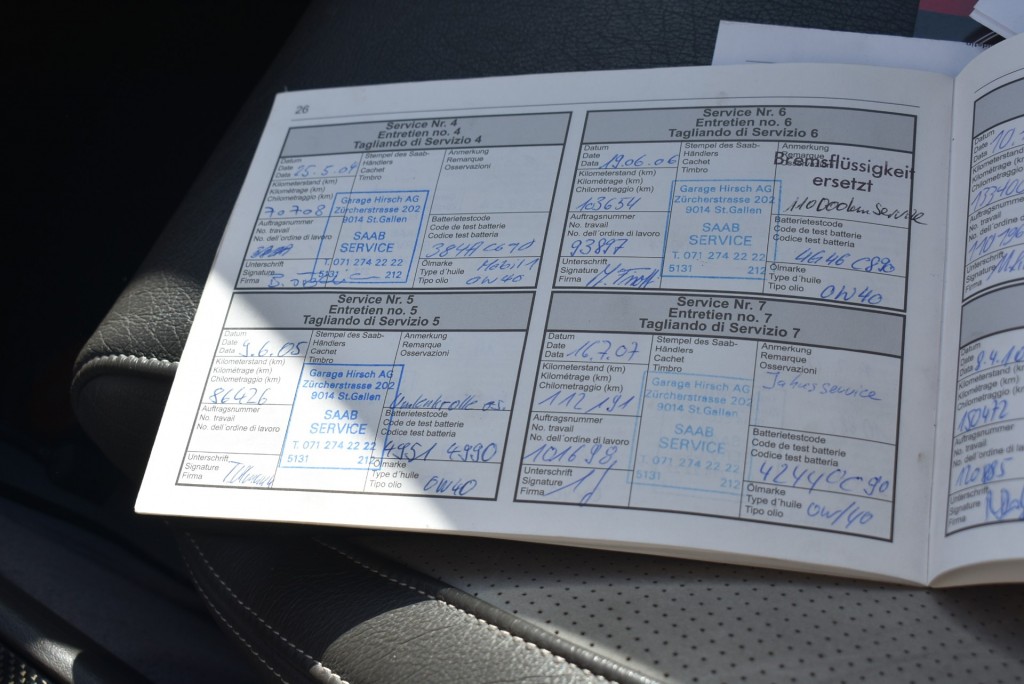 26
Service Nr. 4
Entretien no. 4
Tagliando di Servizio 4
Datum
Date
Data 25.5.04
Stempel des Saab-
Händlers
Cachet
Timbro
Anmerkung
Remarque
Osservazioni
Kilometerstand (km)
Kilométrage (km)
Chilometraggio (km)
70708
Garage Hirsch AG
Zürcherstrasse 202
9014 St.Gallen
SAAB
SERVICE
T. 071 274 22 22
5131 212
Auftragsnummer
No. travail
No. dell'ordine di lavoro
Batterietestcode
Code de test batterie
Codice test batteria
Unterschrift
Signature
Firma
Ölmarke
Type d'huile
Tipo olio
Mobil 1
0W40
Service Nr. 5
Entretien no. 5
Tagliando di Servizio 5
Datum
Date
Data 9.6.05
Stempel des Saab-
Händlers
Cachet
Timbro
Anmerkung
Remarque
Osservazioni
Kilometerstand (km)
Kilométrage (km)
Chilometraggio (km)
86426
Garage Hirsch AG
Zürcherstrasse 202
9014 St.Gallen
SAAB
SERVICE
T. 071 274 22 22
5131 212
Auftragsnummer
No. travail
No. dell'ordine di lavoro
Batterietestcode
Code de test batterie
Codice test batteria
4951 4990
Unterschrift
Signature
Firma
Ölmarke
Type d'huile
Tipo olio
0W40
Service Nr. 6
Entretien no. 6
Tagliando di Servizio 6
Datum
Date
Data 19.06.06
Stempel des Saab-
Händlers
Cachet
Timbro
Anmerkung
Remarque
Bremsflüssigkeit
ersetzt
110000km Service
Kilometerstand (km)
Kilométrage (km)
Chilometraggio (km)
103654
Garage Hirsch AG
Zürcherstrasse 202
9014 St.Gallen
SAAB
SERVICE
T. 071 274 22 22
5131 212
Auftragsnummer
No. travail
No. dell'ordine di lavoro
93897
Batterietestcode
Code de test batterie
Codice test batteria
4G46 C890
Unterschrift
Signature
Firma
Ölmarke
Type d'huile
Tipo olio
0W40
Service Nr. 7
Entretien no. 7
Tagliando di Servizio 7
Datum
Date
Data 16.7.07
Stempel des Saab-
Händlers
Cachet
Timbro
Anmerkung
Remarque
Osservazioni
Jahresservice
Kilometerstand (km)
Kilométrage (km)
Chilometraggio (km)
112191
Garage Hirsch AG
Zürcherstrasse 202
9014 St.Gallen
SAAB
SERVICE
T. 071 274 22 22
5131 212
Auftragsnummer
No. travail
No. dell'ordine di lavoro
101698
Batterietestcode
Code de test batterie
Codice test batteria
42440C90
Unterschrift
Signature
Firma
Ölmarke
Type d'huile
Tipo olio
0W/40
Datum
Date
Data
Kilometerstand
Kilométrage
Chilometraggio
Auftragsnummer
No. travail
No. dell'ordine
Unterschrift
Signature
Firma
Datum
Date
Data
Kilometerstand
Kilométrage
Chilometraggio
150472
Auftragsnummer
No. travail
No. dell'ordine
Unterschrift
Signature
Firma